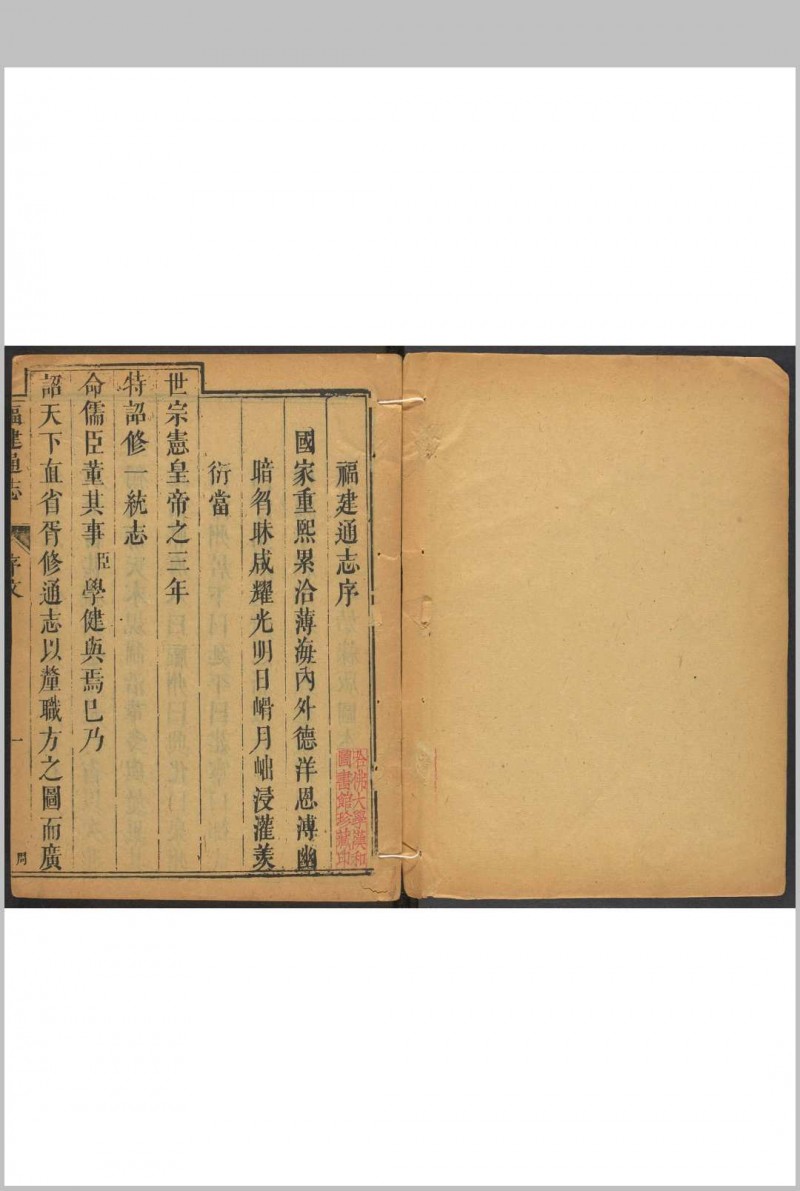 福建通志序
國家重熙累洽薄海內外德洋恩溥幽
暗曶昧咸耀光明日㟞月朏浸灌羨
衍當
世宗憲皇帝之三年
特詔修一統志
命儒臣董其事臣學健與焉已乃
詔天下直省胥修通志以釐職方之圖而廣
福建通志
序文
一
哈佛大學漢和
圖書館珍藏印